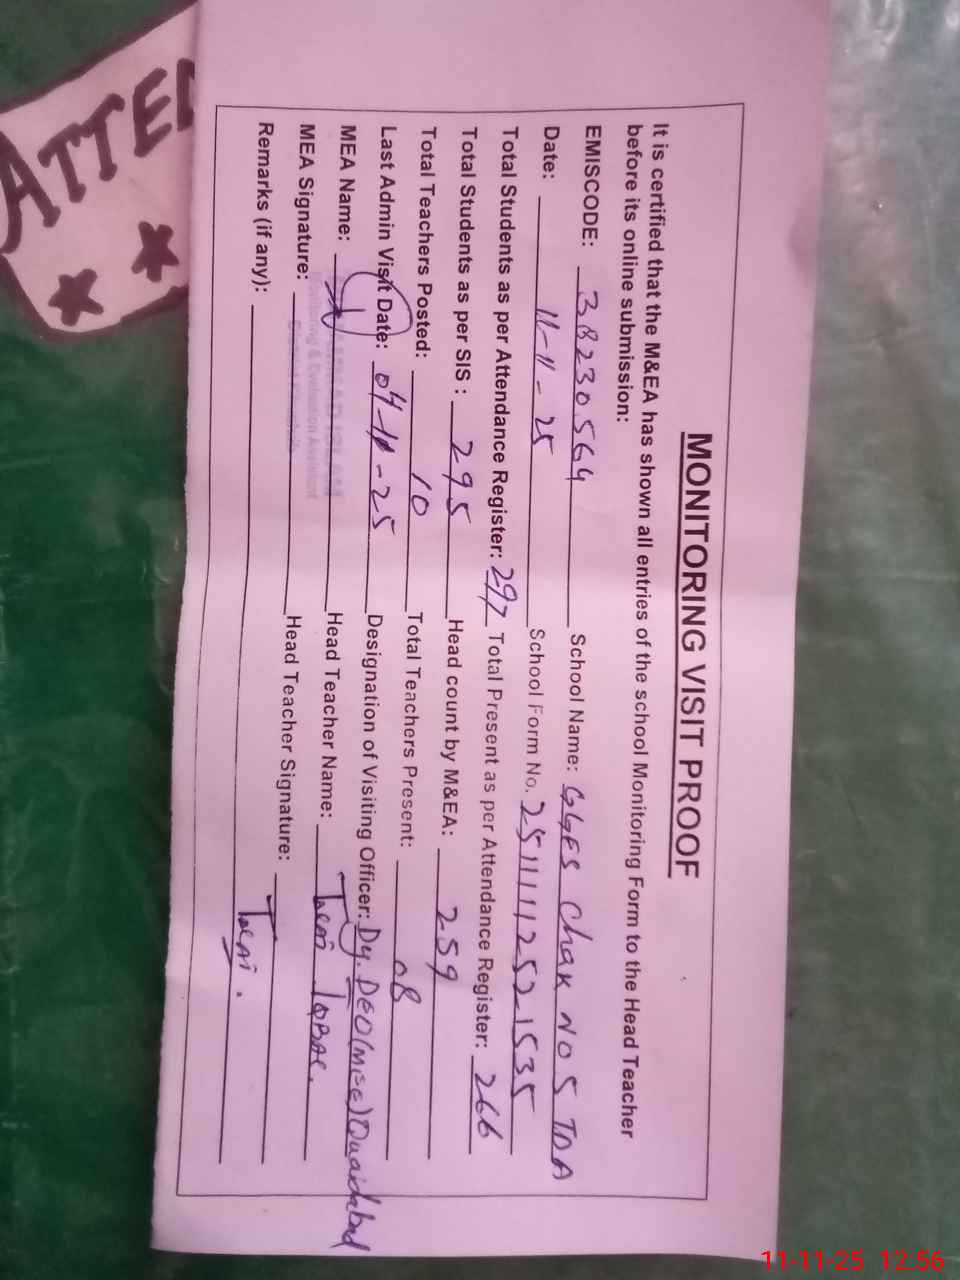 MONITORING VISIT PROOF
It is certified that the M&EA has shown all entries of the school Monitoring Form to the Head Teacher
before its online submission:
EMISCODE: 38230564 School Name: GGES Chak No 5 TDA
Date: 11-11-25 School Form No. 25111112521535
Total Students as per Attendance Register: 297 Total Present as per Attendance Register: 266
Total Students as per SIS: 295 Head count by M&EA: 259
Total Teachers Posted: 10 Total Teachers Present: 08
Last Admin Visit Date: 04-11-25 Designation of Visiting Officer: Dy. DEO (M&E) Quaidabad
MEA Name: Head Teacher Name: Iqbal.
MEA Signature: Monitoring & Evaluation Assistant Head Teacher Signature:
Remarks (if any):
ATTE
11-11-25 12:56